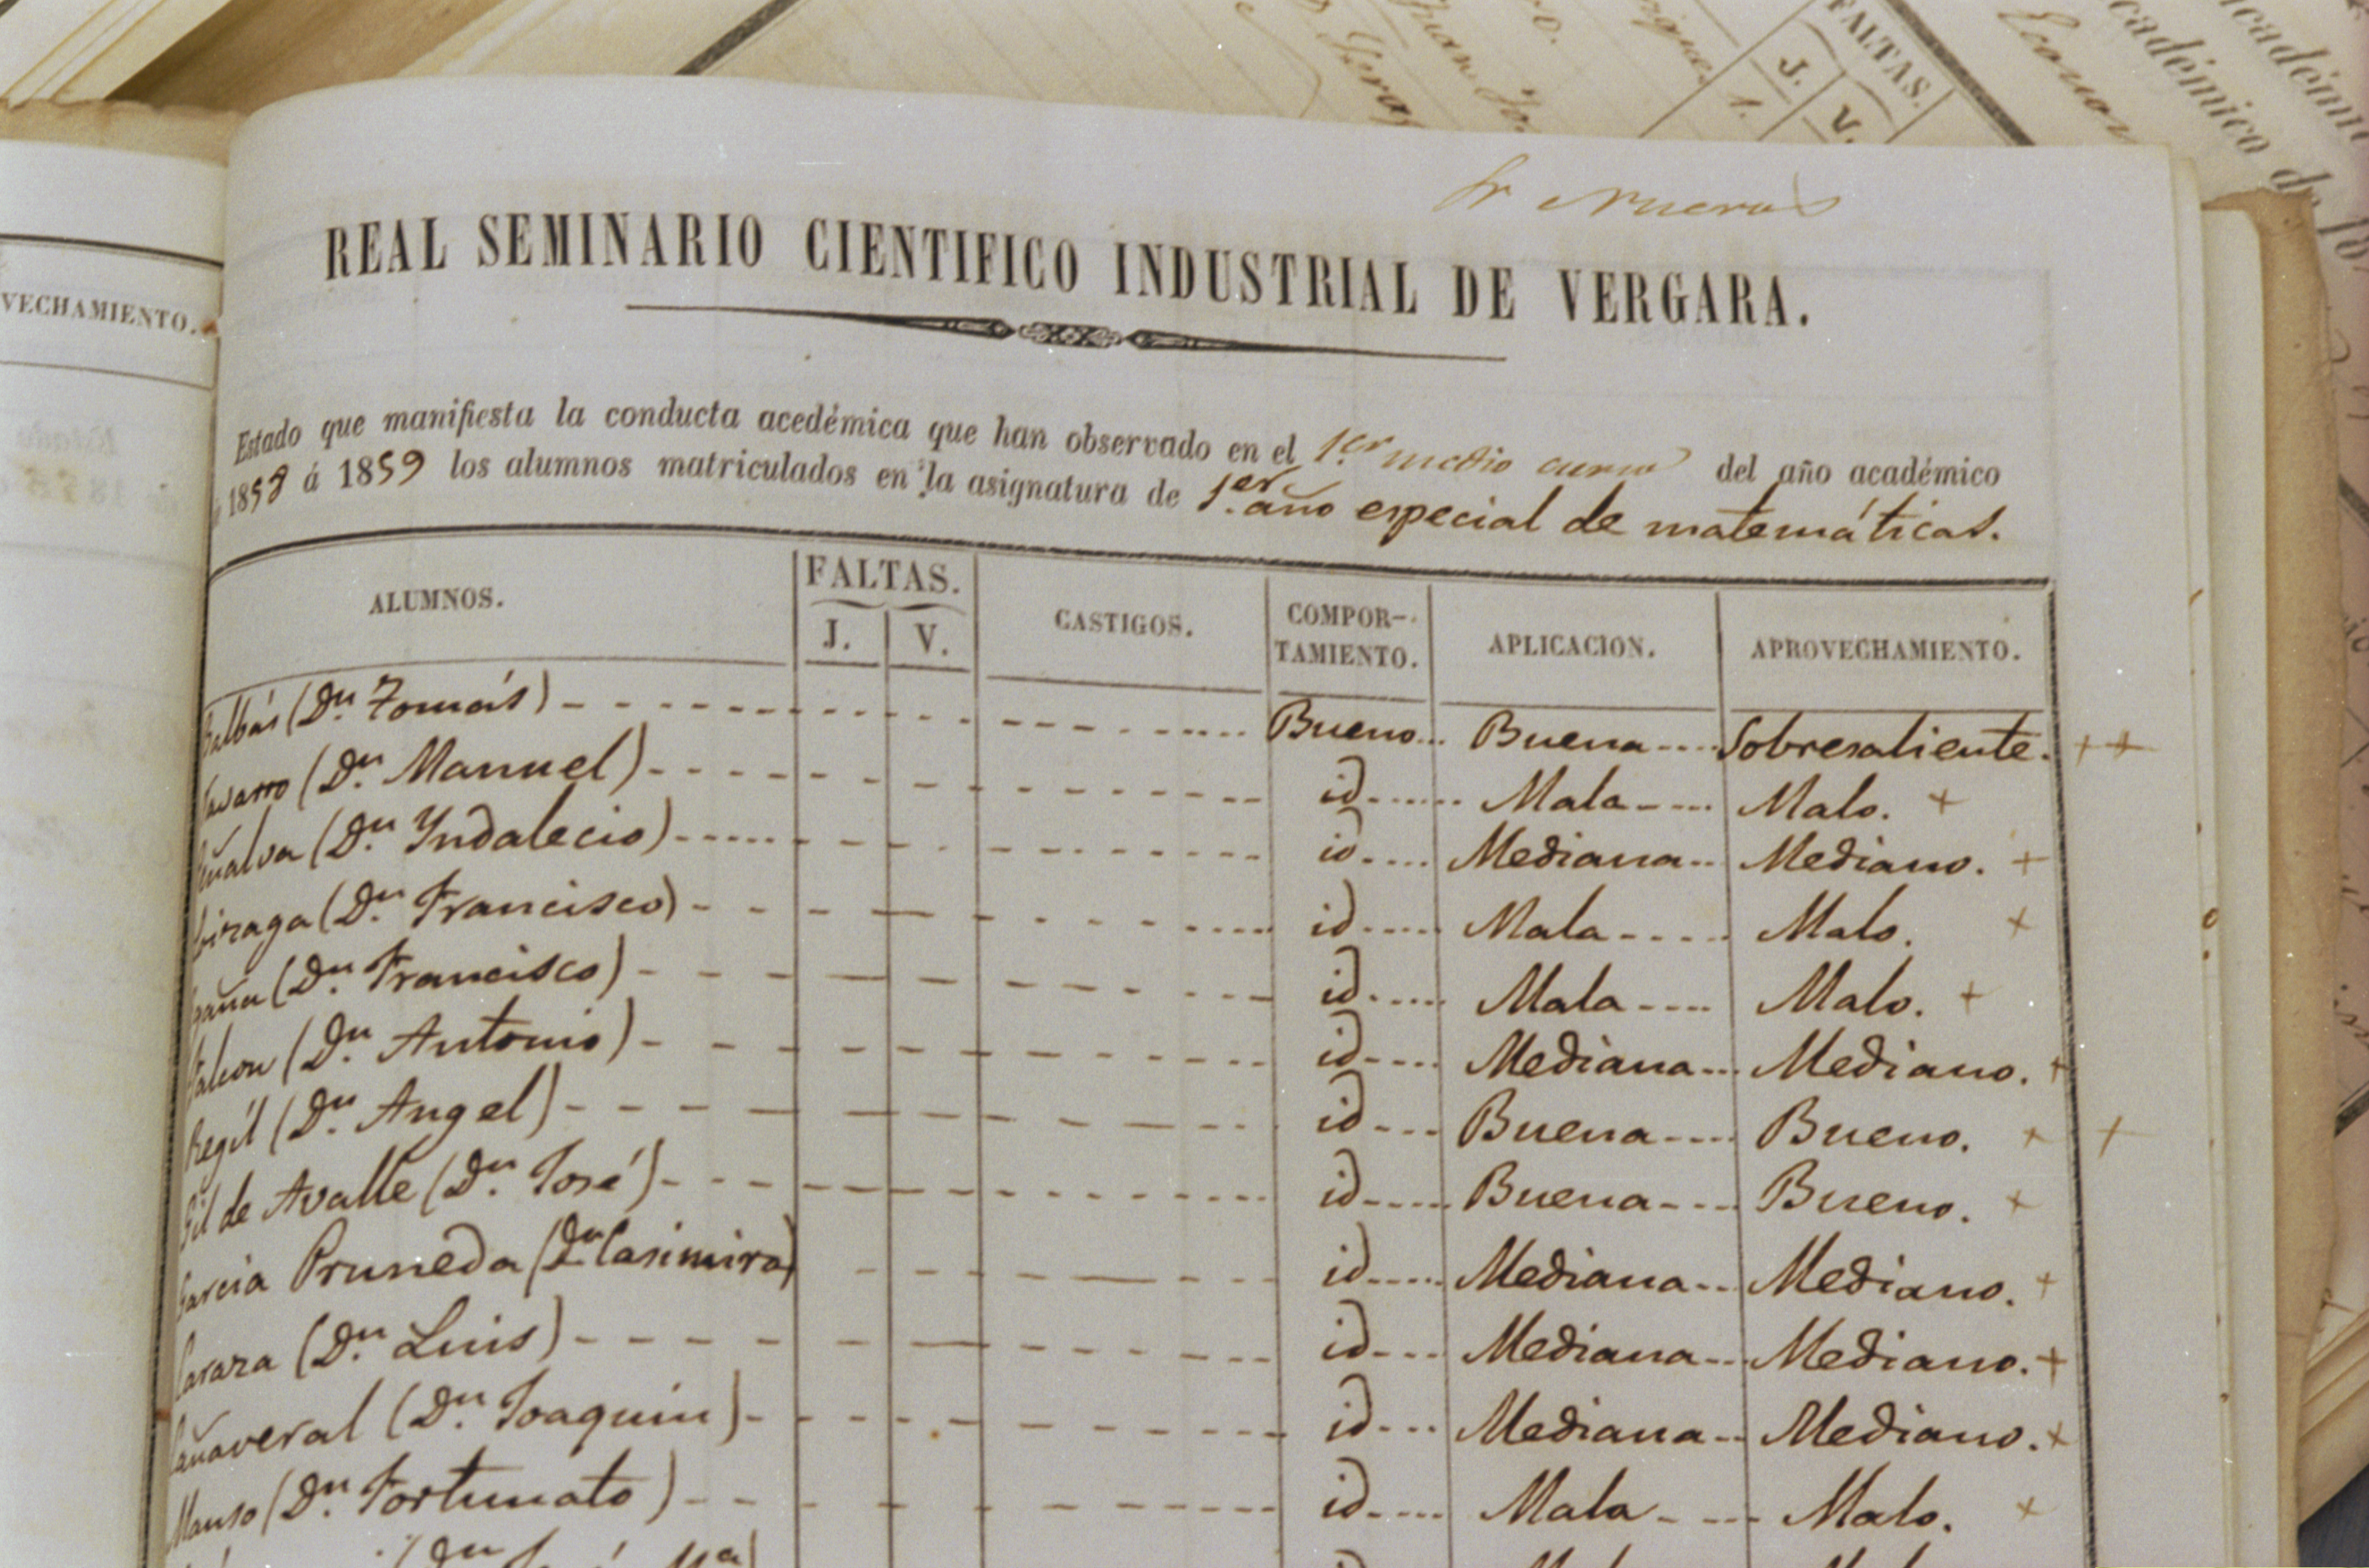 FALTAS.
J. V.
1.
REAL SEMINARIO CIENTIFICO INDUSTRIAL DE VERGARA.
VECHAMIENTO.
Estado que manifiesta la conducta acedémica que han observado en el 1.er medio curso del año académico
1858 á 1859 los alumnos matriculados en la asignatura de 1.er año especial de matemáticas.
ALUMNOS. FALTAS. J. V. CASTIGOS. COMPOR-TAMIENTO. APLICACION. APROVECHAMIENTO.
Balbás (Dn. Tomás) Bueno Buena Sobresaliente. + +
Navarro (Dn. Manuel) id Mala Malo. +
(Dn. Yndalecio) id Mediana Mediano. +
(Dn. Francisco) id Mala Malo. +
(Dn. Francisco) id Mala Malo. +
(Dn. Antonio) id Mediana Mediano. +
Regíl (Dn. Angel) id Buena Bueno. + +
Gil de Avalle (Dn. José) id Buena Bueno. +
Garcia Pruneda (Dn. Casimiro) id Mediana Mediano. +
(Dn. Luis) id Mediana Mediano. +
Cañaveral (Dn. Joaquin) id Mediana Mediano. +
Manso (Dn. Fortunato) id Mala Malo. +